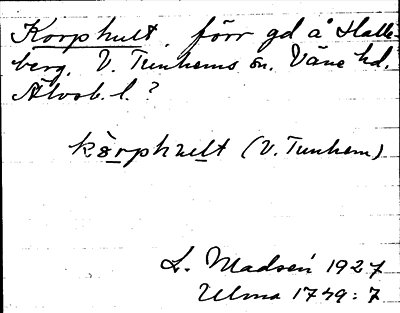 Korphult, förr gd å Halle-
berg, V. Tunhems sn. Väne hd,
Älvsb. l. ?
kårphult (V. Tunhem)
L. Madsén 1927
Ulma 1749:7